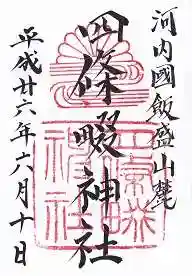 河内國飯盛山麓
四條畷神社
平成廿六年六月十日
四條畷
神社